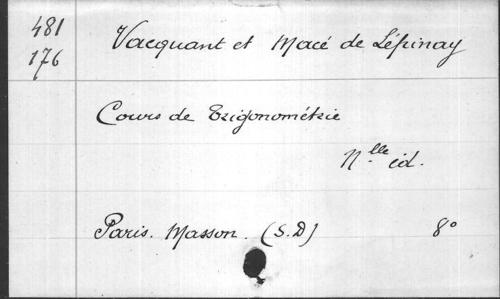 481 Vacquant et Macé de Lépinay
176
Cours de Trigonométrie
Nlle éd.
Paris. Masson. (S.D) 8°